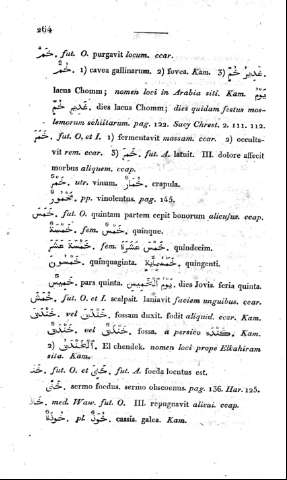 264
خَمَّ. fut. O. purgavit locum. ccar.
خُمٌّ. 1) cavea gallinarum. 2) fovea. Kam. 3) غَدِيرُ خُمٍّ.
lacus Chomm; nomen loci in Arabia siti. Kam. يَوْمُ
غَدِيرِ خُمٍّ. dies lacus Chomm; dies quidam festus mos-
lemorum schiitarum. pag. 122. Sacy Chrest. 2. 111. 112.
خَمَرَ. fut. O. et I. 1) fermentavit massam. ccar. 2) occulta-
vit rem. ccar. 3) خَمِرَ. fut. A. latuit. III. dolore affecit
morbus aliquem. ccap.
خَمْرٌ. utr. vinum. خُمَارٌ. crapula.
مَخْمُورٌ. pp. vinolentus. pag. 145.
خَمَسَ. fut. O. quintam partem cepit bonorum alicujus. ccap.
خَمْسٌ. fem. خَمْسَةٌ. quinque.
خَمْسَ عَشْرَةَ. fem. خَمْسَةَ عَشَرَ. quindecim.
خَمْسُونَ. quinquaginta. خَمْسُمِايَةٍ. quingenti.
خَمِيسٌ. pars quinta. يَوْمُ الْخَمِيسِ. dies Jovis. feria quinta.
خَمَشَ. fut. O. et I. scalpsit. laniavit faciem unguibus. ccar.
خَنْدَقَ. vel خَنْدَقَ. fossam duxit. fodit aliquid. ccar. Kam.
خَنْدَقٌ. vel خَنْدَقٌ. fossa. a persico كَنْدَه. Kam.
2) الْخَنْدَقُ. El chendek. nomen loci prope Elkahiram
sita. Kam.
خَنَا. fut. O. et خَنِيَ. fut. A. foeda locutus est.
خَنًى. sermo foedus. sermo obscoenus. pag. 136. Har. 125.
med. Waw. fut. O. III. repugnavit alicui. ccap.
خُوذَةٌ. pl. خُوَذٌ. cassis. galea. Kam.